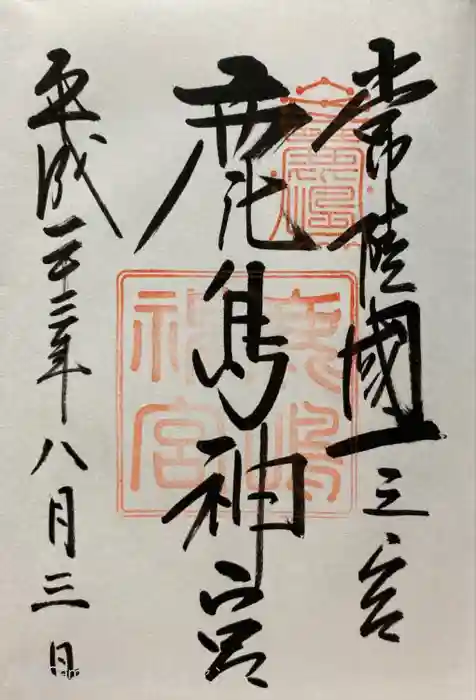 常陸國一之宮
鹿島神宮
平成二十三年八月三日
鹿嶋
神宮